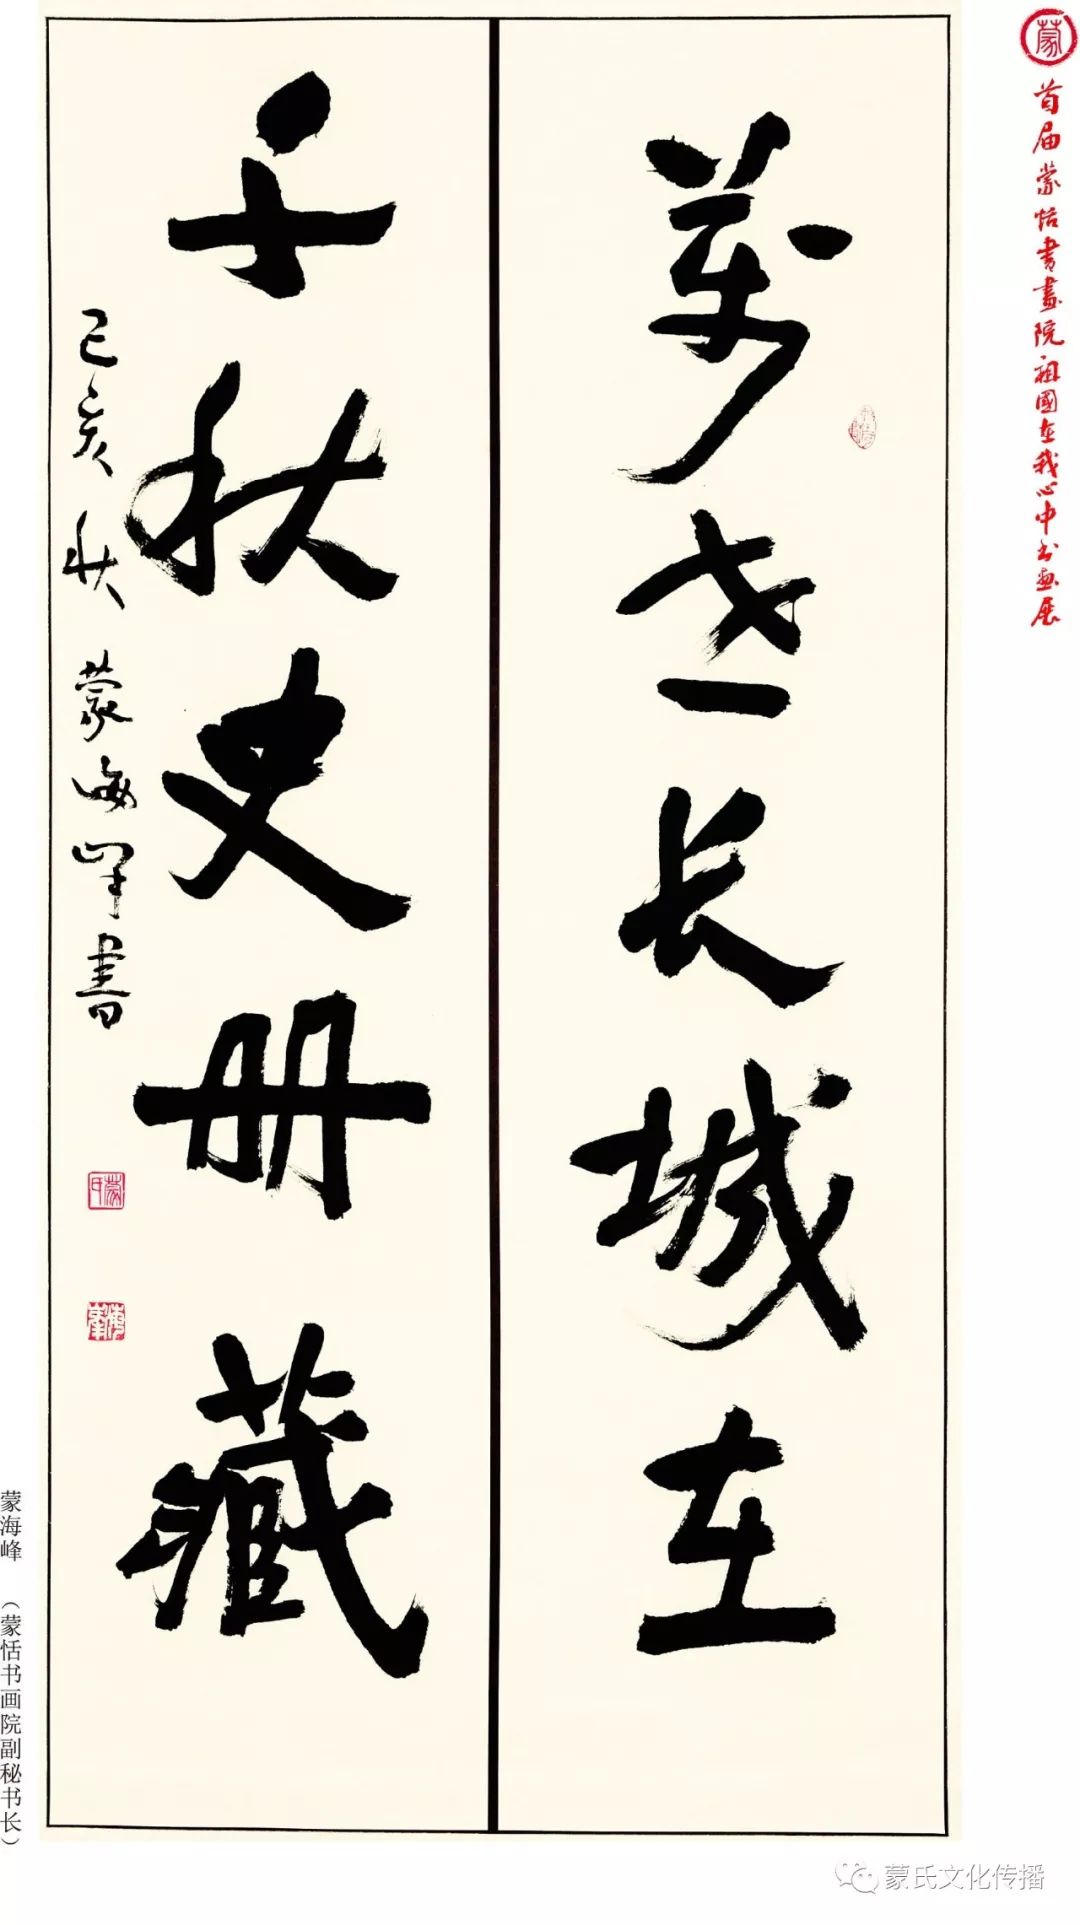 蒙
首届蒙恬书畫院祖國在我心中书画展
萬世长城在
千秋史册藏
己亥秋蒙海峰書
蒙氏
海峯
蒙海峰（蒙恬书画院副秘书长）
蒙氏文化传播